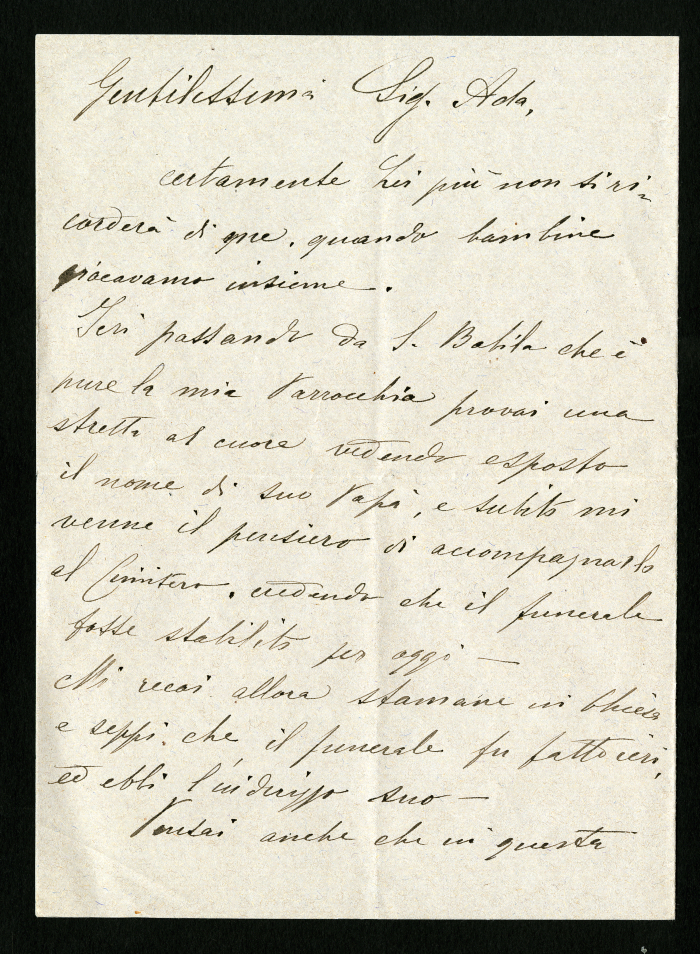 Gentilissima Sig. Ada,
certamente Lei più non si ri-
corderà di me, quando bambine
giocavamo insieme.
Ieri passando da S. Babila che è
pure la mia Parrocchia provai una
stretta al cuore vedendo esposto
il nome di suo Papà, e subito mi
venne il pensiero di accompagnarlo
al Cimitero, credendo che il funerale
fosse stabilito per oggi —
Mi recai allora stamane in Chiesa
e seppi che il funerale fu fatto ieri,
ed ebbi l'indirizzo suo —
Pensai anche che in questa